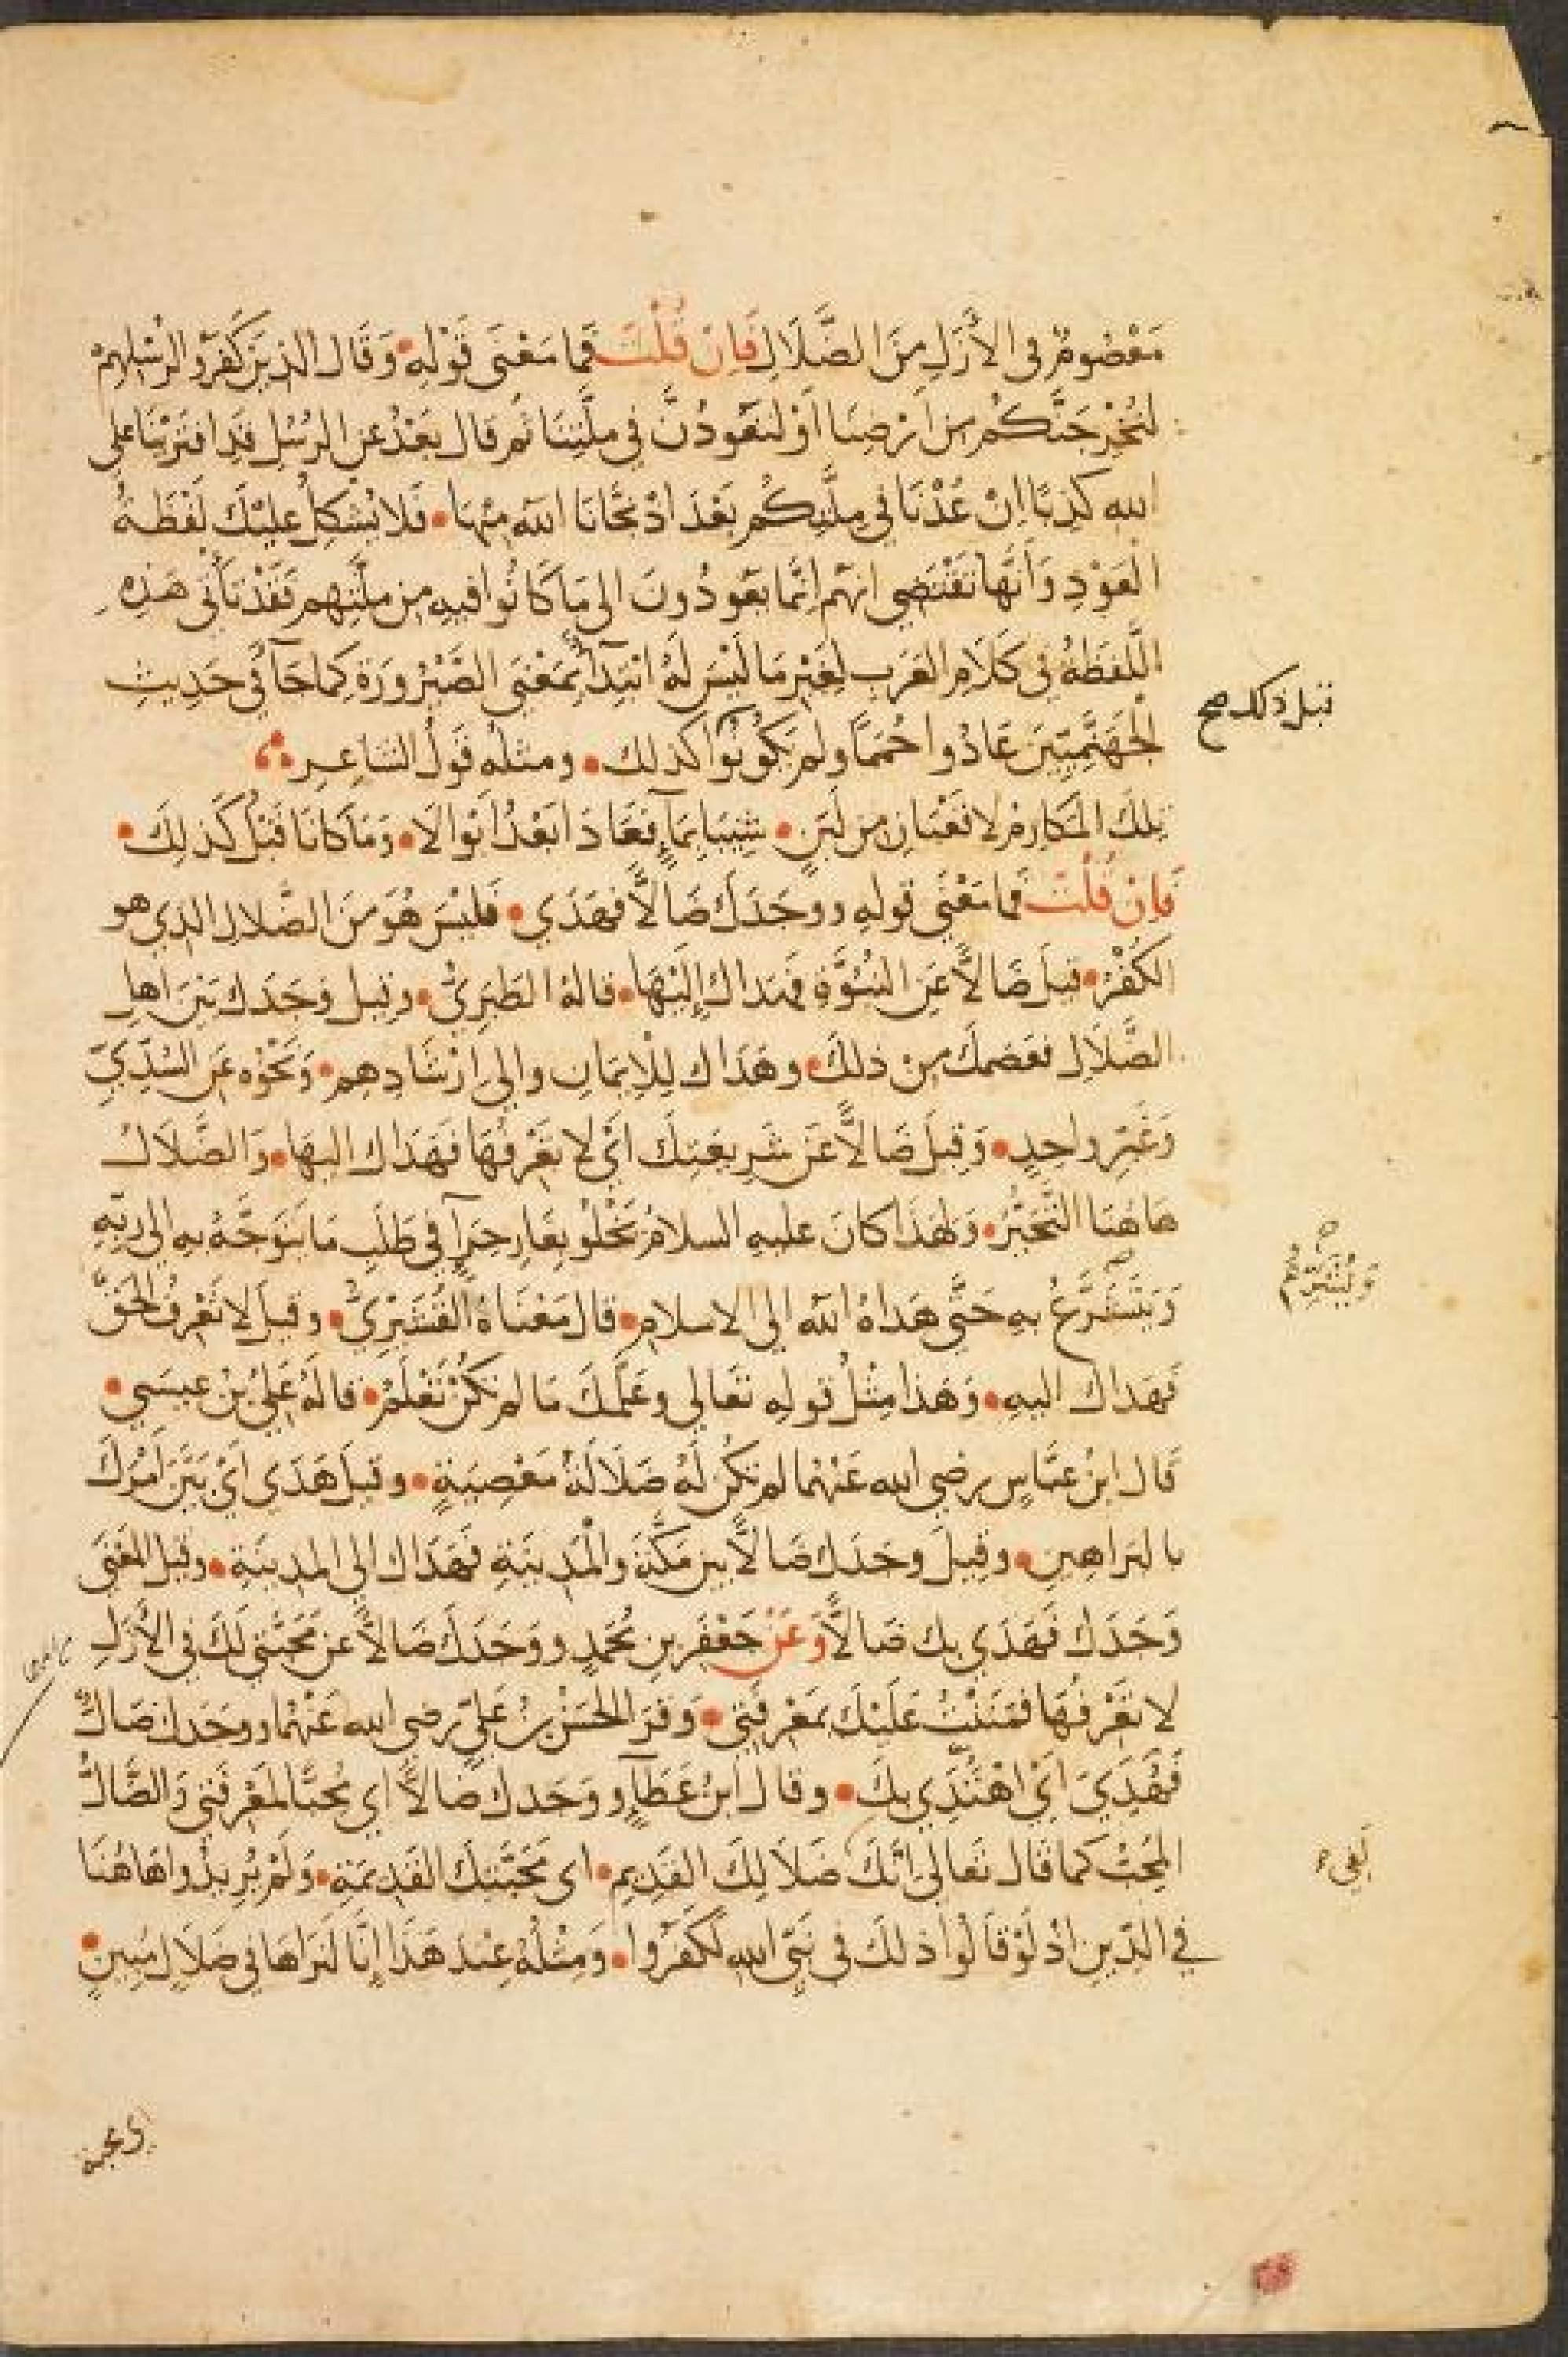 مَعْصُومٌ فى الأَزَلِ مِنَ الضَّلَالِ فَإِنْ قُلْتَ فَما مَعْنَى قَوْلِهِ وَقَالَ الذينَ كَفَرُوا لِرُسُلِهِمْ
لَنُخْرِجَنَّكُمْ مِن اَرْضِنَا اَوْ لَتَعُودُنَّ فِي مِلَّتِنَا ثم قال بَعْدُ عَنِ الرُسُلِ قَدِ افتَرَيْنَا على
الله كَذِبًا اِنْ عُدْنَا في مِلَّتِكُم بَعْدَ اذْ نجَّانَا الله مِنْهَا فَلَا يُشْكِلُ عليْكَ لَفْظَةُ
العَوْدِ وَاَنَّها تَقْتَضِي انهم اِنَّما يَعُودُونَ الى مَا كَانُوا فيهِ مِن مِلَّتِهِم فَقَدْ تَأتي هَذِهِ
اللّفظَةُ فى كَلَامِ العَرَبِ لِغَيْرِ مَا لَيْسَ لَهُ ابْتِدَاءٌ بِمَعْنَى الصَّيْرُورَةِ كَما جَآءَ في حَدِيثِ
قبل ذلك صح
الْجَهَنَّمِيِّينَ عَادُوا حُمَمًا ولم يَكُونُوا كذلك ومثلهُ قَولُ الشاعِرِ
تِلكَ المَكارِمُ لا قَعْبَانِ مِن لَبَنٍ شِيبَا بِمَآءٍ فَعَادَا بَعْدُ اَبْوالَا وَمَا كانَا قَبْلُ كَذلِكَ
فَإِنْ قُلْتَ فما مَعْنَى قولهِ ووَجَدَكَ ضَالًّا فَهَدَي فَليْسَ هُوَ مِنَ الضَّلالِ الذي هو
الكُفْرُ قيلَ ضَالًّا عَنِ النُبُوَّةِ فَهَدَاكَ إِلَيْهَا قالهُ الطَبَرِيُّ وقيل وَجَدَكَ بَيْنَ اهلِ
الضَّلَالِ فَعَصَمَكَ مِن ذلكَ وهَدَاكَ لِلْإيمَانِ والى اِرْشَادِهِم وَنَحْوُه عَنِ السُّدِّيّ
وَغَيْرِ واحِدٍ وَقيلَ ضَالًّا عَنْ شَرِيعَتِكَ اَيْ لا تَعْرِفُهَا فَهَدَاكَ اليهَا وَالضَّلَالُ
هَاهُنَا التَّحَيُّرُ وَلهَذَا كانَ عليهِ السلامُ يَخْلُو بِغَارِ حِرَآءٍ في طَلَبِ مَا يَتَوَجَّهُ به الى ربِّهِ
وَيَتَشَرَّعُ بهِ حَتَّى هَدَاهُ الله الى الاسلامِ قال مَعْنَاهُ القُشَيْرِيُّ وقيلَ لا تَعْرِفُ الحَقَّ
فَهَدَاكَ اليهِ وَهذا مِثْلُ قولهِ تَعَالى وعَلَّمَكَ مَا لم تَكُنْ تَعْلَمُ قالهُ عَلِيُّ بْنُ عِيسَى
قَال ابنُ عبَّاسٍ رضي الله عَنْهُما لم تَكُن لَهُ ضَلَالَةُ مَعْصِيَةٍ وقيلَ هَدَى اَيْ بَيَّنَ اَمْرَكَ
بالبَرَاهِينِ وقِيلَ وجَدَكَ ضَالًّا بَيْنَ مَكَّةَ والْمَدِينَةِ فَهَدَاكَ الى المدينَةِ وقيل المَعْنَى
وَجَدَكَ فَهَدَي بك ضَالًّا وَعَنْ جَعْفَرِ بنِ مُحَمدٍ ووَجَدَكَ ضَالًّا عَن مَحَبَّتِي لَكَ فِي الأَزَلِ
لا تَعْرِفُهَا فَمَنَنْتُ عَلَيْكَ بِمَعْرِفَتِي وَقرَا الحَسَنُ بنُ عَلِيٍّ رضي الله عَنْهُما ووَجَدَكَ ضَالٌّ
فَهُدِيَ اَيْ اهْتَدَي بِكَ وقَالَ ابنُ عَطَآءٍ ووَجَدَكَ ضَالًّا اي مُحِبًّا لِمَعْرِفَتي وَالضَّالُّ
المُحِبُّ كما قَال تَعالى اِنَّكَ ضَلَالِكَ القَدِيمِ اى مَحَبَّتِكَ القَدِيمَةِ وَلَمْ يُرِيدُوا هَاهُنَا
لَفي
في الدِّينِ اذْ لَوْ قَالُوا ذلكَ فى نَبِيِّ اللهِ لَكَفَرُوا وَمِثْلُهُ عِنْدَ هَذَا إِنَّا لَنَرَاهَا في ضَلَالٍ مُبِينٍ